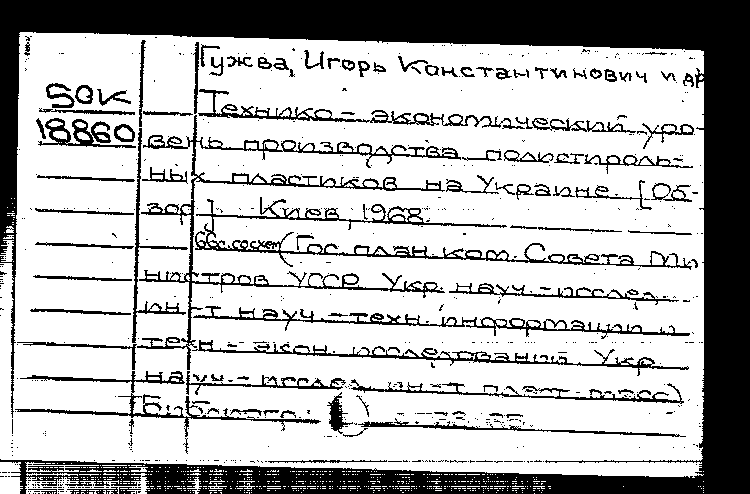 Гужва, Игорь Константинович и др
50К
18860
Технико-экономический уро-
вень производства полистироль-
ных пластиков на Украине. [Об-
зор]. Киев, 1968.
66с. со схем (Гос. план. ком. Совета Ми-
нистров УССР. Укр. науч.-исслед.
ин-т науч.-техн. информации и
техн.-экон. исследований. Укр.
науч.-исслед. ин-т пласт. масс)
Библиогр.: